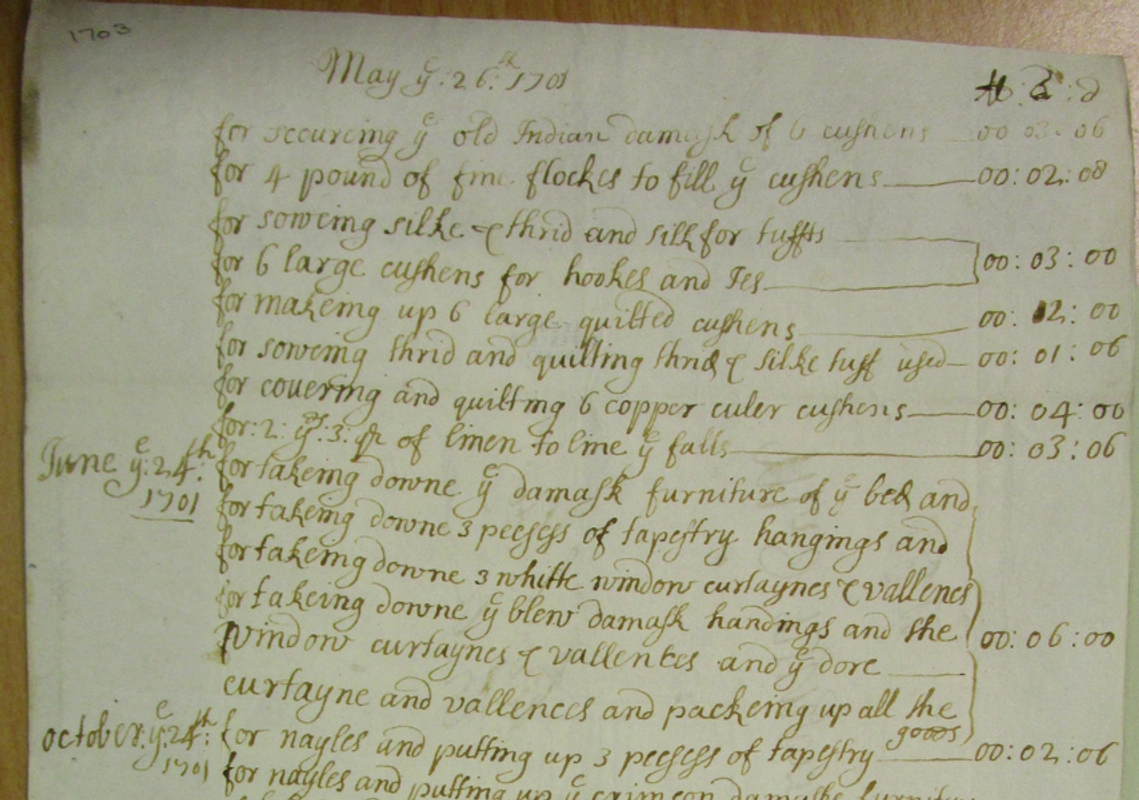 1703
May yͤ: 26:ᵗʰ 1701
li: s : d
for scoureing yͤ old Indian damask of 6 cushens 00 03: 06
for 4 pound of fine flockes to fill yͤ cushens 00: 02: 08
for soweing silke & thrid and silk for tuffts
for 6 large cushens for hookes and Ies 00: 03: 00
for makeing up 6 large quilted cushens 00: 12: 00
for soweing thrid and quilting thrid & silke tuff used 00: 01: 06
for covering and quilting 6 copper culer cushens 00: 04: 00
for: 2: yᵈˢ: 3: qʳ of linen to line yͤ falls 00: 03: 06
June yͤ: 24:ᵗʰ 1701
for takeing downe yͤ damask furniture of yͤ bed and
for takeing downe 3 peeses of tapestry hangings and
for takeing downe 3 whitte window curtaynes & vallences
for takeing downe yͤ blew damask handings and the
window curtaynes & vallences and yͤ dore 00: 06: 00
curtayne and vallences and packeing up all the goods
october: yͤ: 24ᵗʰ: 1701
for nayles and putting up 3 peeses of tapestry 00: 02: 06
for nayles and putting up yͤ crimson damaske furniture